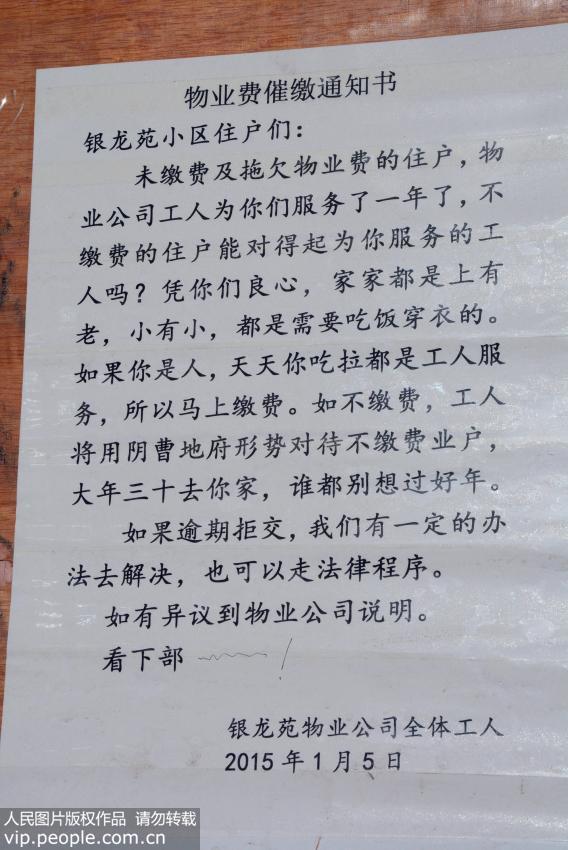 物业费催缴通知书
银龙苑小区住户们：
未缴费及拖欠物业费的住户，物
业公司工人为你们服务了一年了，不
缴费的住户能对得起为你服务的工
人吗？凭你们良心，家家都是上有
老，小有小，都是需要吃饭穿衣的。
如果你是人，天天你吃拉都是工人服
务，所以马上缴费。如不缴费，工人
将用阴曹地府形势对待不缴费业户，
大年三十去你家，谁都别想过好年。
如果逾期拒交，我们有一定的办
法去解决，也可以走法律程序。
如有异议到物业公司说明。
看下部
银龙苑物业公司全体工人
2015年1月5日
人民图片版权作品 请勿转载
vip.people.com.cn